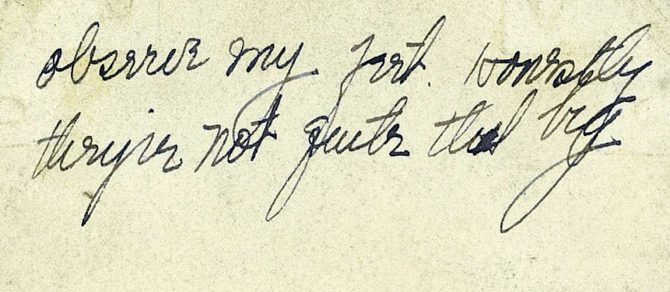 observe my feet. Honestly
they're not quite that big